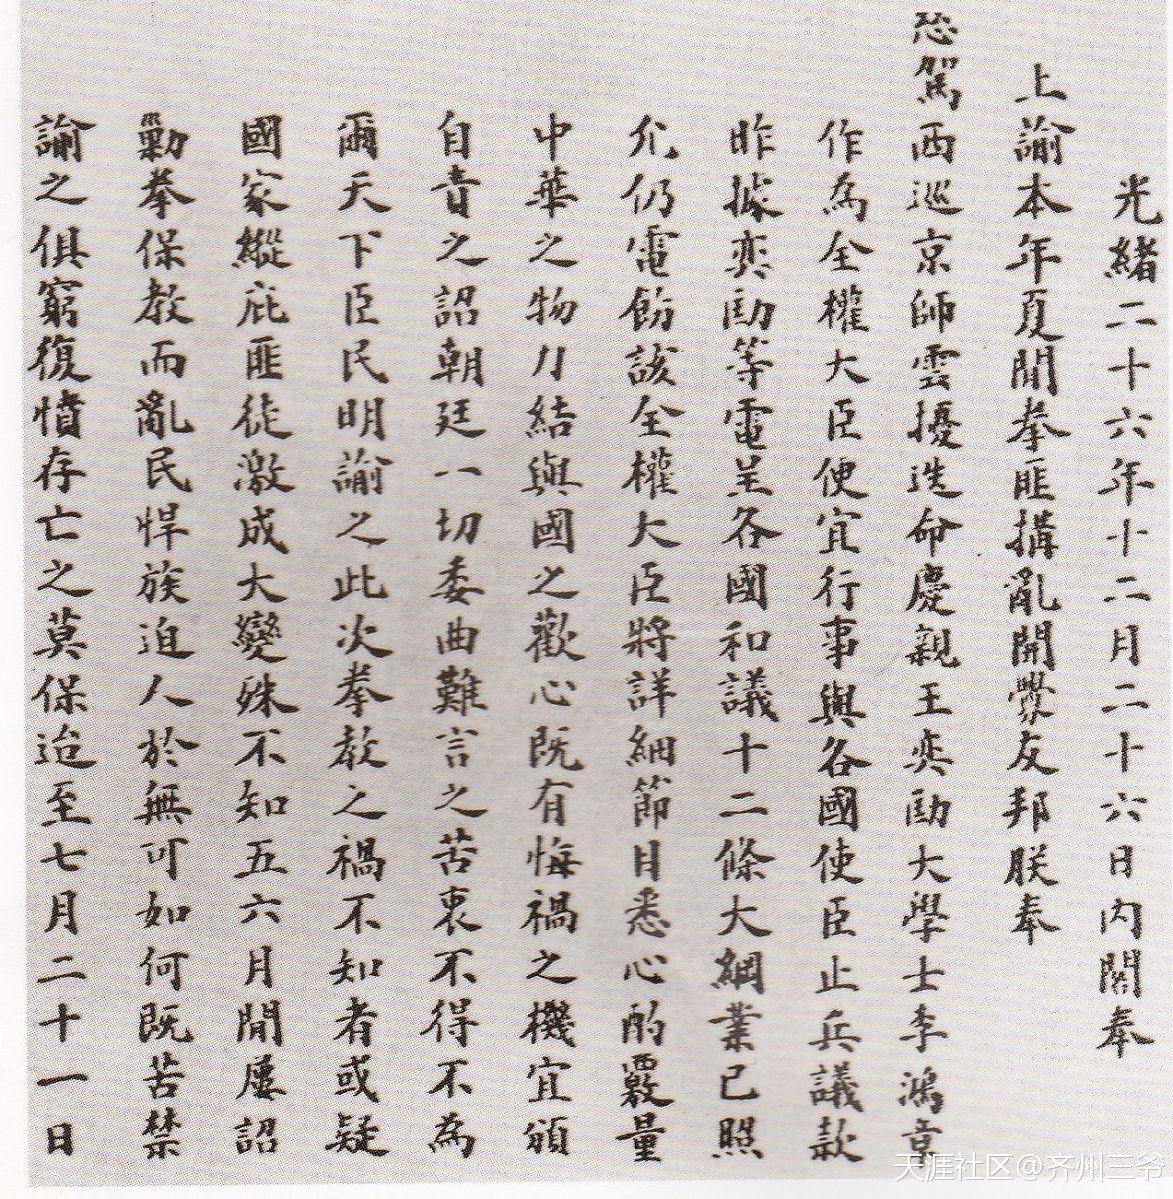 光緒二十六年十二月二十六日內閣奉
上諭本年夏間拳匪搆亂開釁友邦朕奉
慈駕西巡京師雲擾迭命慶親王奕劻大學士李鴻章
作為全權大臣便宜行事與各國使臣止兵議款
昨據奕劻等電呈各國和議十二條大綱業已照
允仍電飭該全權大臣將詳細節目悉心酌覈量
中華之物力結與國之歡心既有悔禍之機宜頒
自責之詔朝廷一切委曲難言之苦衷不得不為
爾天下臣民明諭之此次拳教之禍不知者或疑
國家縱庇匪徒激成大變殊不知五六月間屢詔
勦拳保教而亂民悍族迫人於無可如何既苦禁
諭之俱窮復憤存亡之莫保迨至七月二十一日
天涯社区@齐州三爷